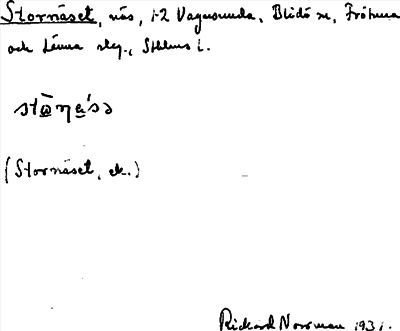 Stornäset, näs, 1-2 Vagnsunda, Blidö sn, Frötuna
och Länna skg., Sthlms l.
(Stornäset, ek.)
Rickard Norrman 1931.